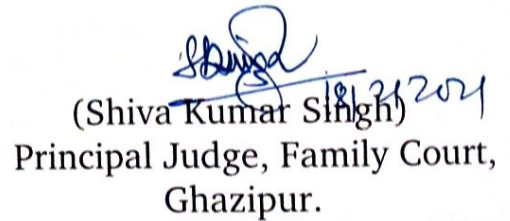 18/2/2021
(Shiva Kumar Singh)
Principal Judge, Family Court,
Ghazipur.